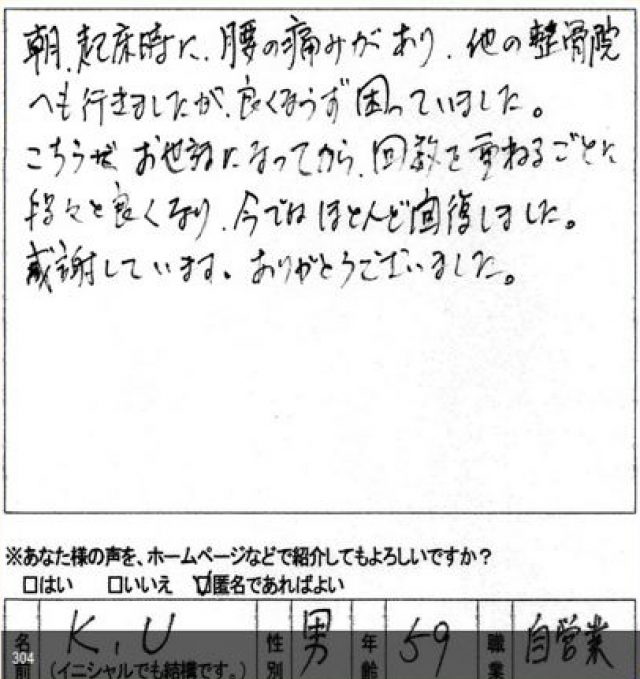 朝、起床時に、腰の痛みがあり、他の整骨院
へも行きましたが、良くならず困っていました。
こちらで お世話になってから、回数を重ねるごとに
段々と良くなり、今ではほとんど回復しました。
感謝しています。ありがとうございました。
※あなた様の声を、ホームページなどで紹介してもよろしいですか？
□はい □いいえ ☑匿名であればよい
名前 K.U (イニシャルでも結構です。) 性別 男 年齢 59 職業 自営業
304